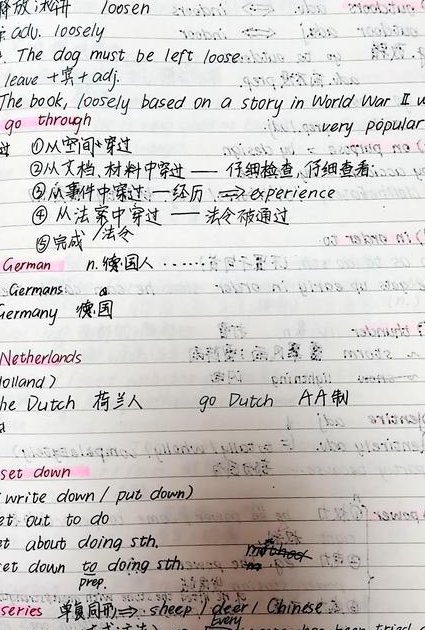 释放;松开 loosen
adv. loosely
The dog must be left loose.
leave + 宾 + adj.
The book, loosely based on a story in World War II w
go through very popular
过 ①从空间穿过
②从文档,材料中穿过 —— 仔细检查,仔细查看
③从事件中穿过 — 经历 ⟹ experience
④从法案中穿过 —— 法令被通过
/法令
⑤完成
German n. 德国人 ······
Germans a
Germany 德国
Netherlands
Holland)
he Dutch 荷兰人 go Dutch AA制
set down
(write down / put down)
et out to do
et about doing sth.
et down to doing sth.
prep.
series 单复同形 ⟹ sheep / deer / Chinese
Every
has been tried